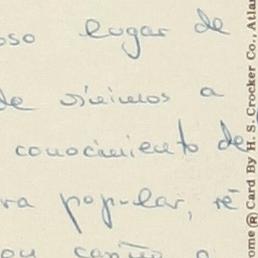 oso lugar de
de vinimos a
conocimiento de
ra popular, ré
con cariño a
ome ® Card By H. S. Crocker Co., Atlan